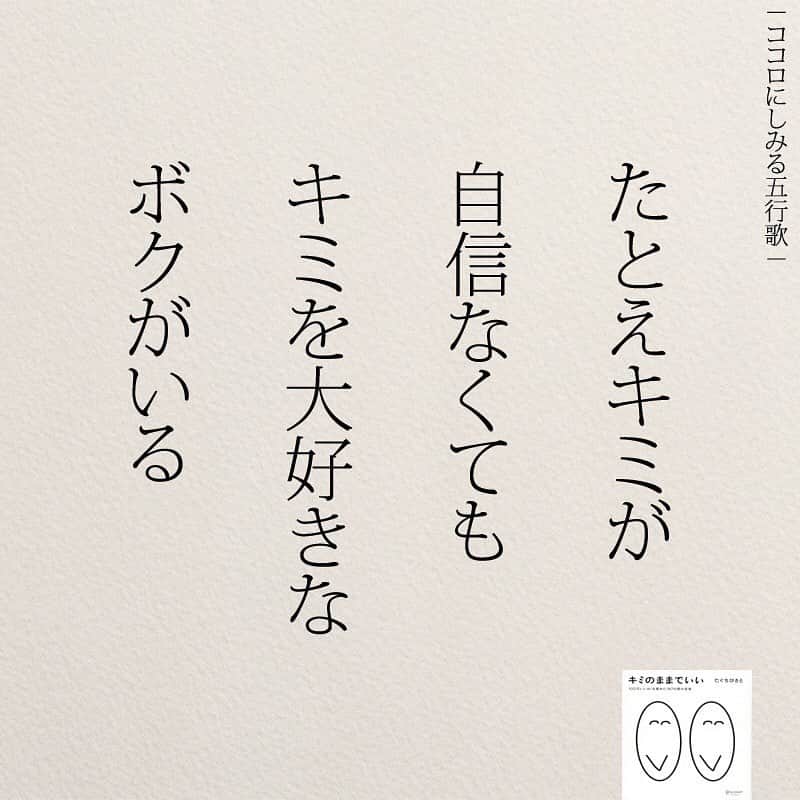 ―ココロにしみる五行歌―
たとえキミが
自信なくても
キミを大好きな
ボクがいる
キミのままでいい
たぐちひさと